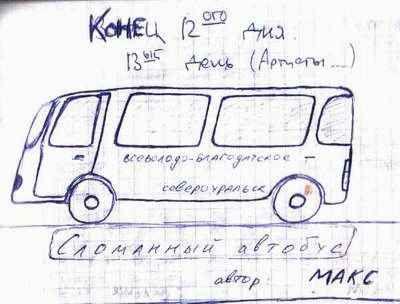 Конец 12ого дня.
13ый день (Артисты...)
всеволодо-благодатское –
североуральск
Сломанный автобус
автор: МАКС